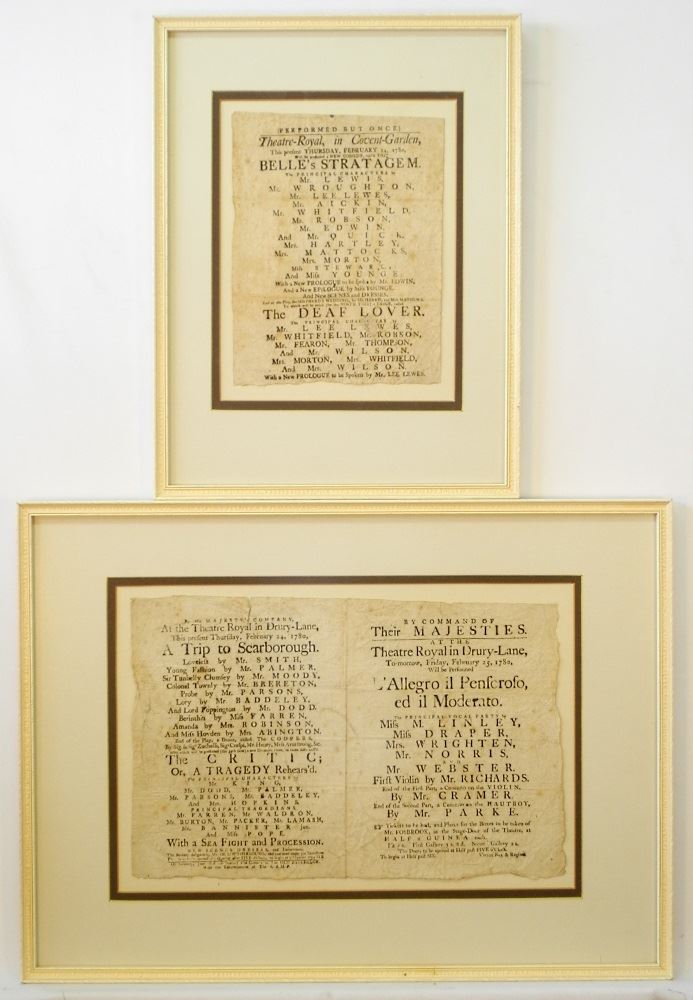 (PERFORMED BUT ONCE)
Theatre-Royal, in Covent-Garden,
This present THURSDAY, FEBRUARY 24, 1780,
Will be presented a NEW COMEDY, call'd THE
BELLE's STRATAGEM.
The PRINCIPAL CHARACTERS by
Mr. LEWIS,
Mr. WROUGHTON,
Mr. LEE LEWES,
Mr. AICKIN,
Mr. WHITFIELD,
Mr. ROBSON,
Mr. EDWIN,
And Mr. QUICK.
Mrs. HARTLEY,
Mrs. MATTOCKS,
Mrs. MORTON,
Miss STEWART,
And Miss YOUNGE.
With a New PROLOGUE to be spoke by Mr. EDWIN,
And a New EPILOGUE by Miss YOUNGE.
And New SCENES and DRESSES.
The DEAF LOVER.
The PRINCIPAL CHARACTERS by
Mr. LEE LEWES,
Mr. WHITFIELD, Mr. ROBSON,
Mr. FEARON, Mr. THOMPSON,
And Mr. WILSON,
Mrs. MORTON, Mrs. WHITFIELD,
And Mrs. WILSON.
With a New PROLOGUE to be Spoken by Mr. LEE LEWES.
By His MAJESTY's COMPANY,
At the Theatre Royal in Drury-Lane,
This present Thursday, February 24, 1780,
A Trip to Scarborough.
Loveless by Mr. SMITH,
Young Fashion by Mr. PALMER,
Sir Tunbelly Clumsey by Mr. MOODY,
Colonel Townly by Mr. BRERETON,
Probe by Mr. PARSONS,
Lory by Mr. BADDELEY,
And Lord Foppington by Mr. DODD.
Berinthia by Miss FARREN,
Amanda by Mrs. ROBINSON,
And Miss Hoyden by Mrs. ABINGTON.
End of the Play, a Dance, called The COOPERS,
The CRITIC;
Or, A TRAGEDY Rehears'd.
The PRINCIPAL CHARACTERS by
Mr. KING,
Mr. DODD, Mr. PALMER,
Mr. PARSONS, Mr. BADDELEY,
And Mrs. HOPKINS.
PRINCIPAL TRAGEDIANS
Mr. FARREN, Mr. WALDRON,
Mr. BURTON, Mr. PACKER, Mr. LAMASH,
Mr. BANNISTER jun.
And Miss POPE.
With a SEA FIGHT and PROCESSION.
BY COMMAND OF
Their MAJESTIES.
AT THE
Theatre Royal in Drury-Lane,
To-morrow, Friday, February 25, 1780,
Will be Performed
L'Allegro il Penseroso,
ed il Moderato.
The PRINCIPAL VOCAL PARTS by
Miss M. LINLEY,
Miss DRAPER,
Mrs. WRIGHTEN,
Mr. NORRIS,
AND
Mr. WEBSTER.
First Violin by Mr. RICHARDS.
End of the First Part, a Concerto on the VIOLIN,
By Mr. CRAMER.
End of the Second Part, a Concerto on the HAUTBOY,
By Mr. PARKE.
Tickets to be had, and Places for the Boxes to be taken of
Mr. FOSBROOK, at the Stage-Door of the Theatre, at
HALF a GUINEA each.
Pit 5s. First Gallery 3s. 6d. Second Gallery 2s.
The Doors to be opened at Half past FIVE o'Clock.
To begin at Half past SIX. Vivant Rex & Regina.